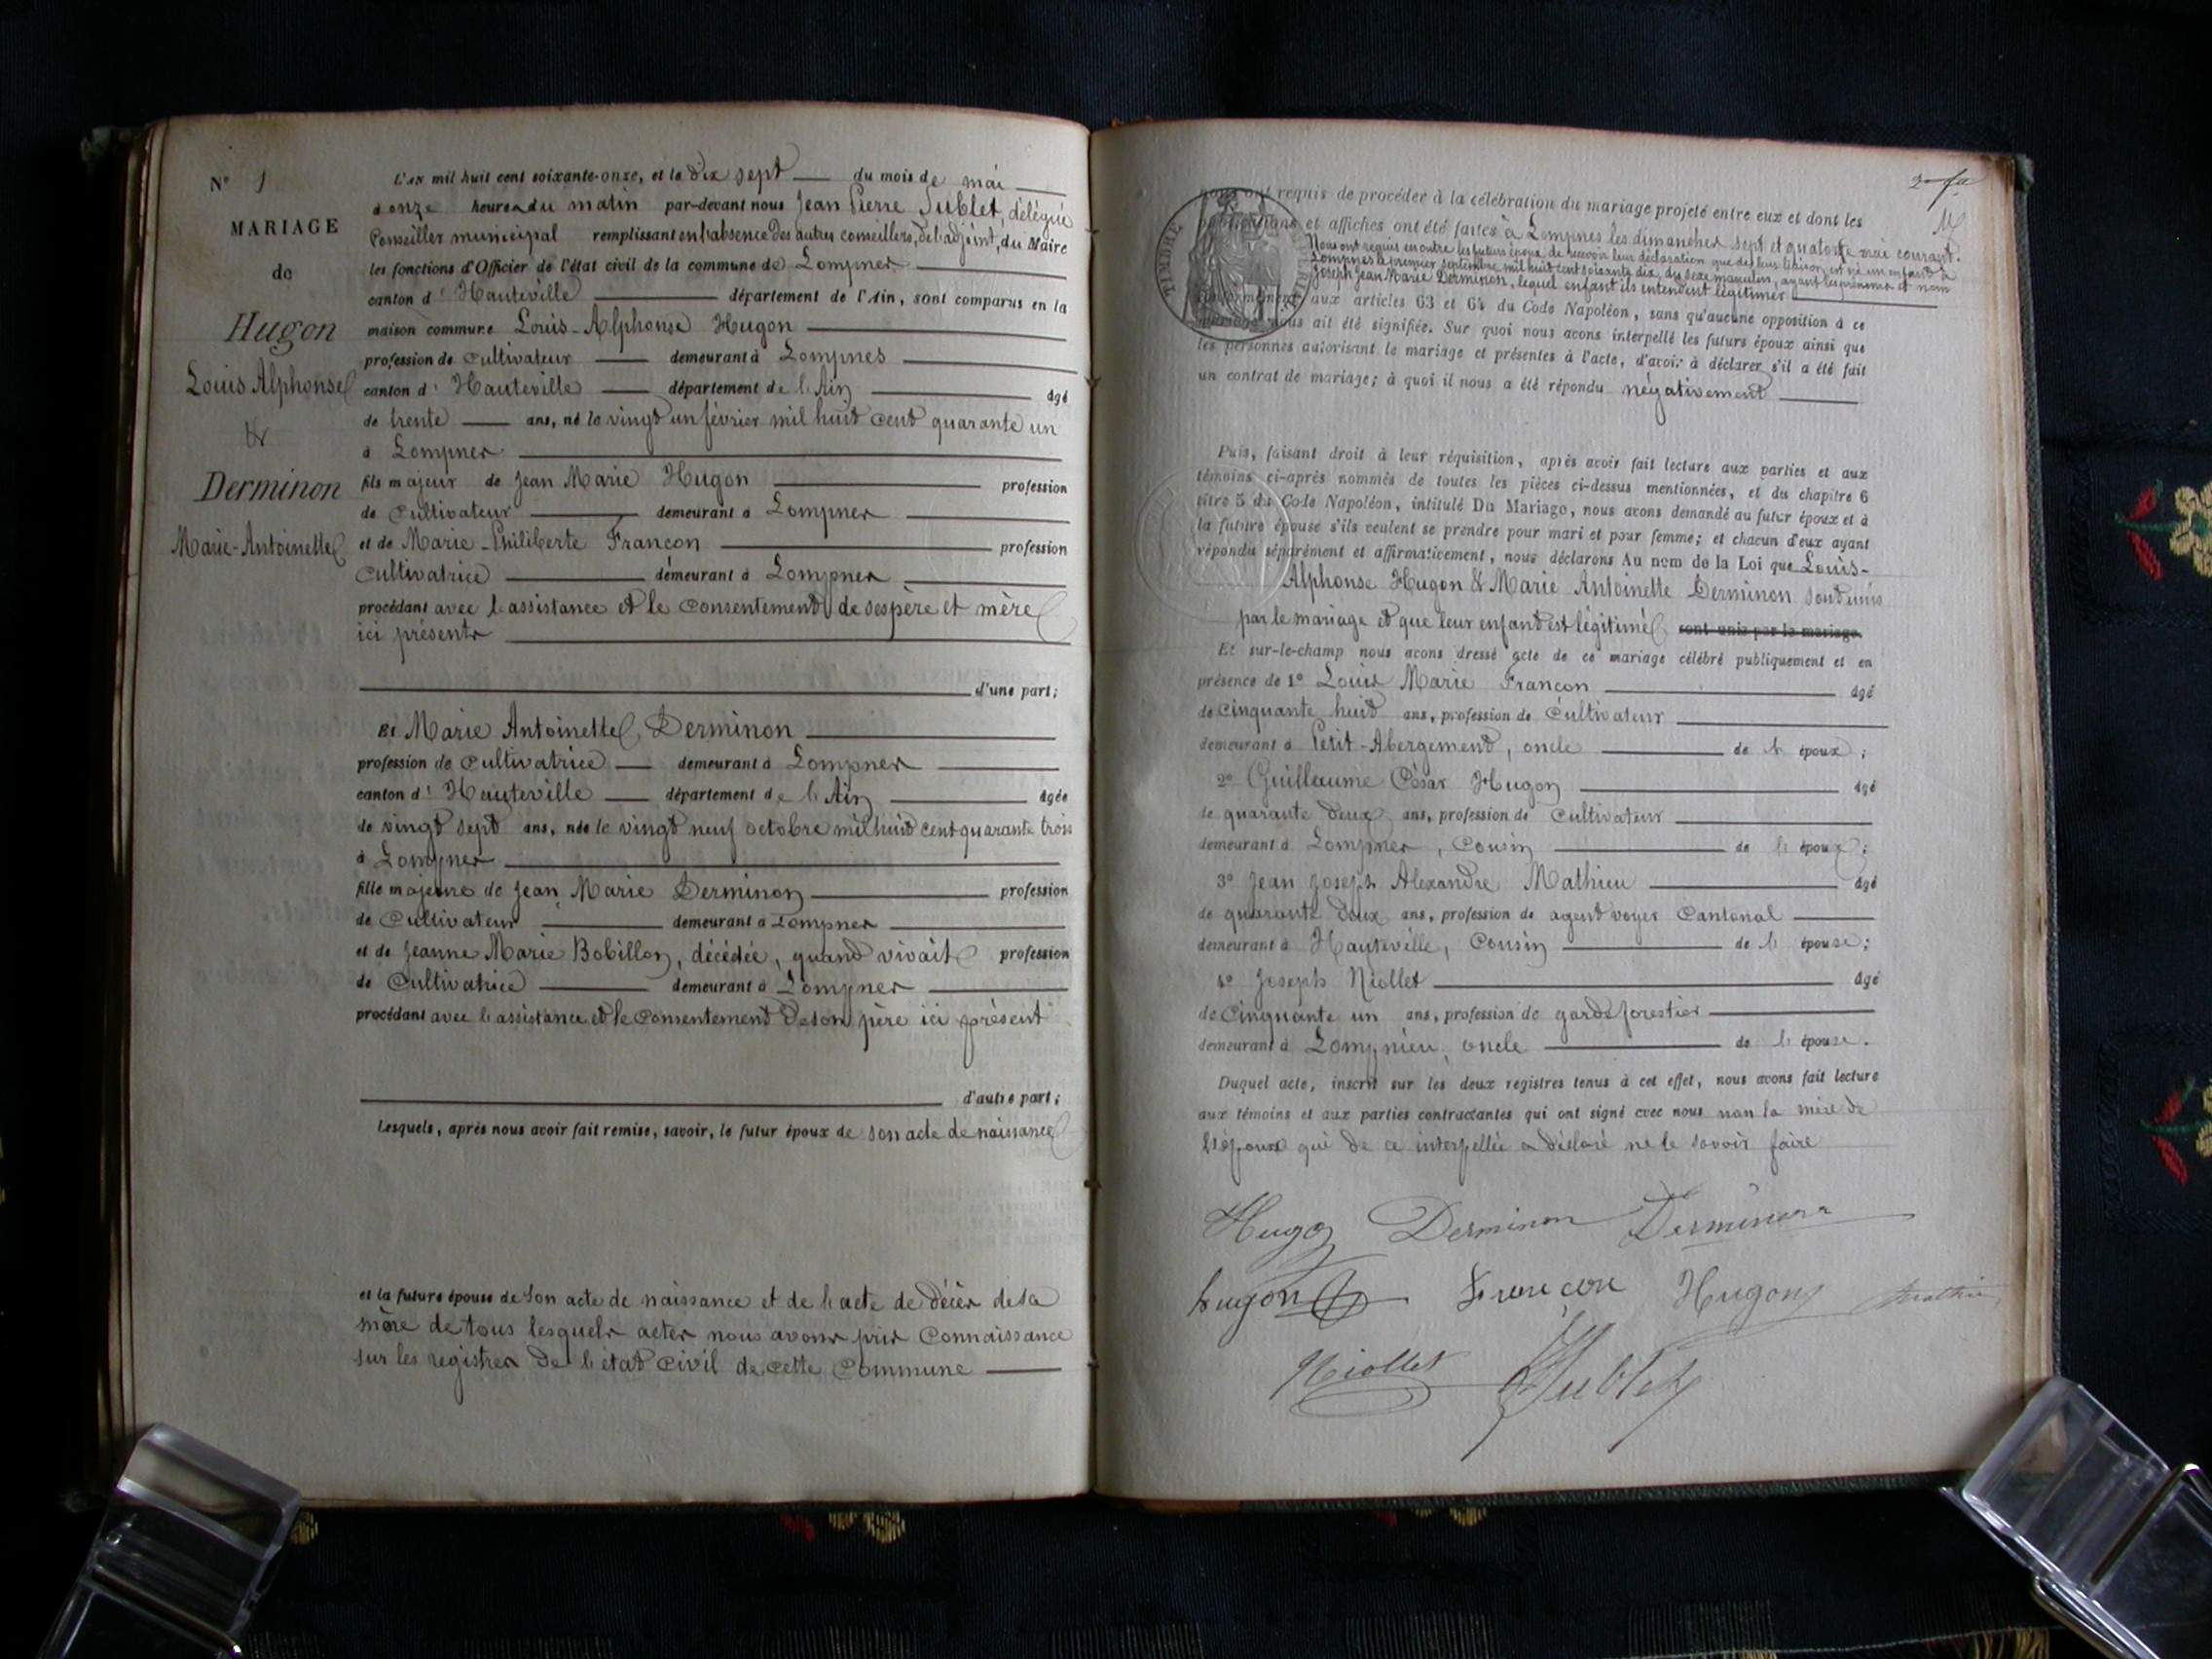 N° 1
MARIAGE
de
Hugon
Louis Alphonse
&
Derminon
Marie-Antoinette
L'AN mil huit cent soixante-onze, et le dix sept du mois de mai
à onze heures du matin par-devant nous Jean Pierre Sublet, délégué
Conseiller municipal remplissant en l'absence des autres conseillers, de l'adjoint, du Maire
les fonctions d'Officier de l'état civil de la commune de Lompnes
canton d' Hauteville département de l'Ain, sont comparus en la
maison commune Louis-Alphonse Hugon
profession de Cultivateur demeurant à Lompnes
canton d' Hauteville département de l'Ain âgé
de trente ans, né le vingt un février mil huit cent quarante un
à Lompnes
fils majeur de Jean Marie Hugon profession
de Cultivateur demeurant à Lompnes
et de Marie-Philiberte Francon profession
Cultivatrice demeurant à Lompnes
procédant avec l'assistance et le consentement de ses père et mère
ici présents
d'une part;
Et Marie Antoinette Derminon
profession de Cultivatrice demeurant à Lompnes
canton d' Hauteville département de l'Ain âgée
de vingt sept ans, née le vingt neuf octobre mil huit cent quarante trois
à Lompnes
fille majeure de Jean Marie Derminon profession
de Cultivateur demeurant à Lompnes
et de Jeanne Marie Bobillon, décédée, quand vivait profession
de Cultivatrice demeurant à Lompnes
procédant avec l'assistance et le consentement de son père ici présent
d'autre part;
Lesquels, après nous avoir fait remise, savoir, le futur époux de son acte de naissance
et la future épouse de son acte de naissance et de l'acte de décès de sa
mère de tous lesquels actes nous avons pris connaissance
sur les registres de l'état civil de cette Commune
TIMBRE
nous ont requis de procéder à la célébration du mariage projeté entre eux et dont les
publications et affiches ont été faites à Lompnes les dimanches sept et quatorze mai courant.
Nous ont requis en outre les futurs époux de recevoir leur déclaration que de leur liaison est né un enfant à
Lompnes le premier septembre mil huit cent soixante dix, du sexe masculin, ayant les prénoms et nom
Joseph Jean Marie Derminon, lequel enfant ils entendent légitimer
conformément aux articles 63 et 64 du Code Napoléon, sans qu'aucune opposition à ce
mariage nous ait été signifiée. Sur quoi nous avons interpellé les futurs époux ainsi que
les personnes autorisant le mariage et présentes à l'acte, d'avoir à déclarer s'il a été fait
un contrat de mariage; à quoi il nous a été répondu négativement
Puis, faisant droit à leur réquisition, après avoir fait lecture aux parties et aux
témoins ci-après nommés de toutes les pièces ci-dessus mentionnées, et du chapitre 6
titre 5 du Code Napoléon, intitulé Du Mariage, nous avons demandé au futur époux et à
la future épouse s'ils veulent se prendre pour mari et pour femme; et chacun d'eux ayant
répondu séparément et affirmativement, nous déclarons Au nom de la Loi que Louis-
Alphonse Hugon & Marie Antoinette Derminon sont unis
par le mariage et que leur enfant est légitimé sont unis par le mariage.
Et sur-le-champ nous avons dressé acte de ce mariage célébré publiquement et en
présence de 1° Louis Marie Francon âgé
de Cinquante huit ans, profession de Cultivateur
demeurant à Petit-Abergement, oncle de l' époux;
2° Guillaume César Hugon âgé
de quarante deux ans, profession de Cultivateur
demeurant à Lompnes, Cousin de l' époux;
3° Jean Joseph Alexandre Mathieu âgé
de quarante deux ans, profession de agent voyer Cantonal
demeurant à Hauteville, Cousin de l' épouse;
4° Joseph Niollet âgé
de Cinquante un ans, profession de garde forestier
demeurant à Lompnieu, oncle de l' épouse.
Duquel acte, inscrit sur les deux registres tenus à cet effet, nous avons fait lecture
aux témoins et aux parties contractantes qui ont signé avec nous non la mère de
l'époux qui de ce interpellée a déclaré ne le savoir faire
Hugon Derminon Derminon
hugon Francon Hugon Mathieu
Niollet Sublet